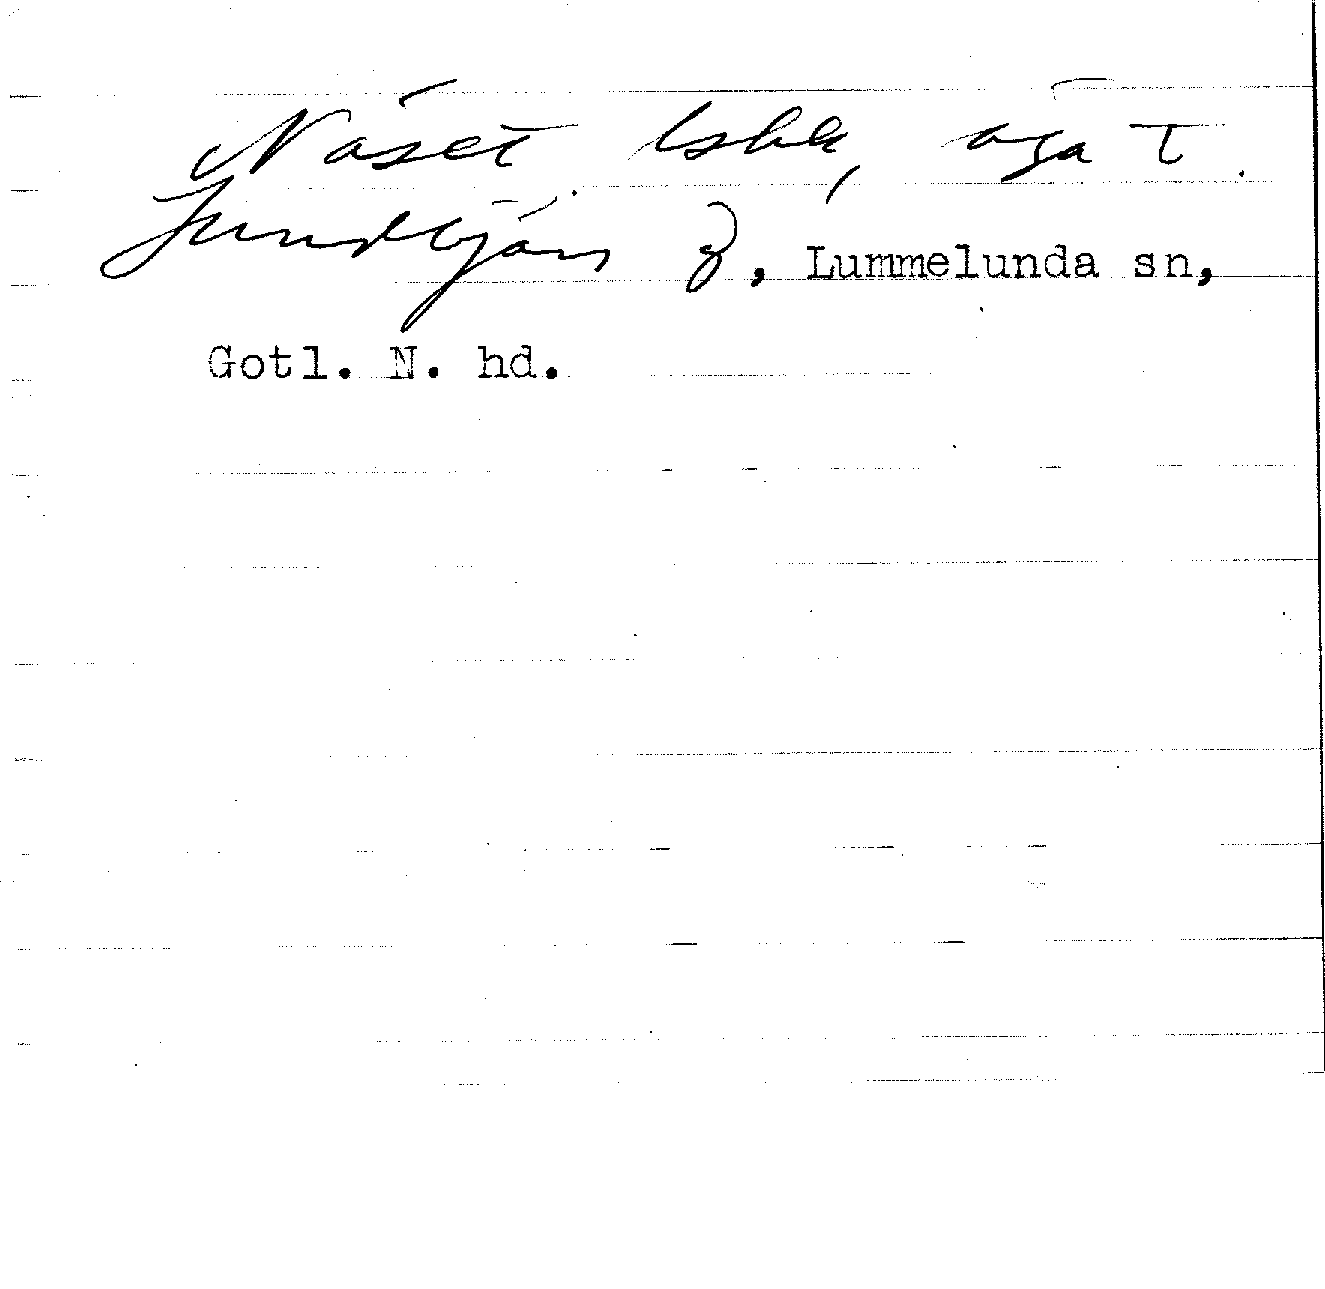 Näset, lshl, äga t.
Sundbjärs 3, Lummelunda sn,
Gotl. N. hd.